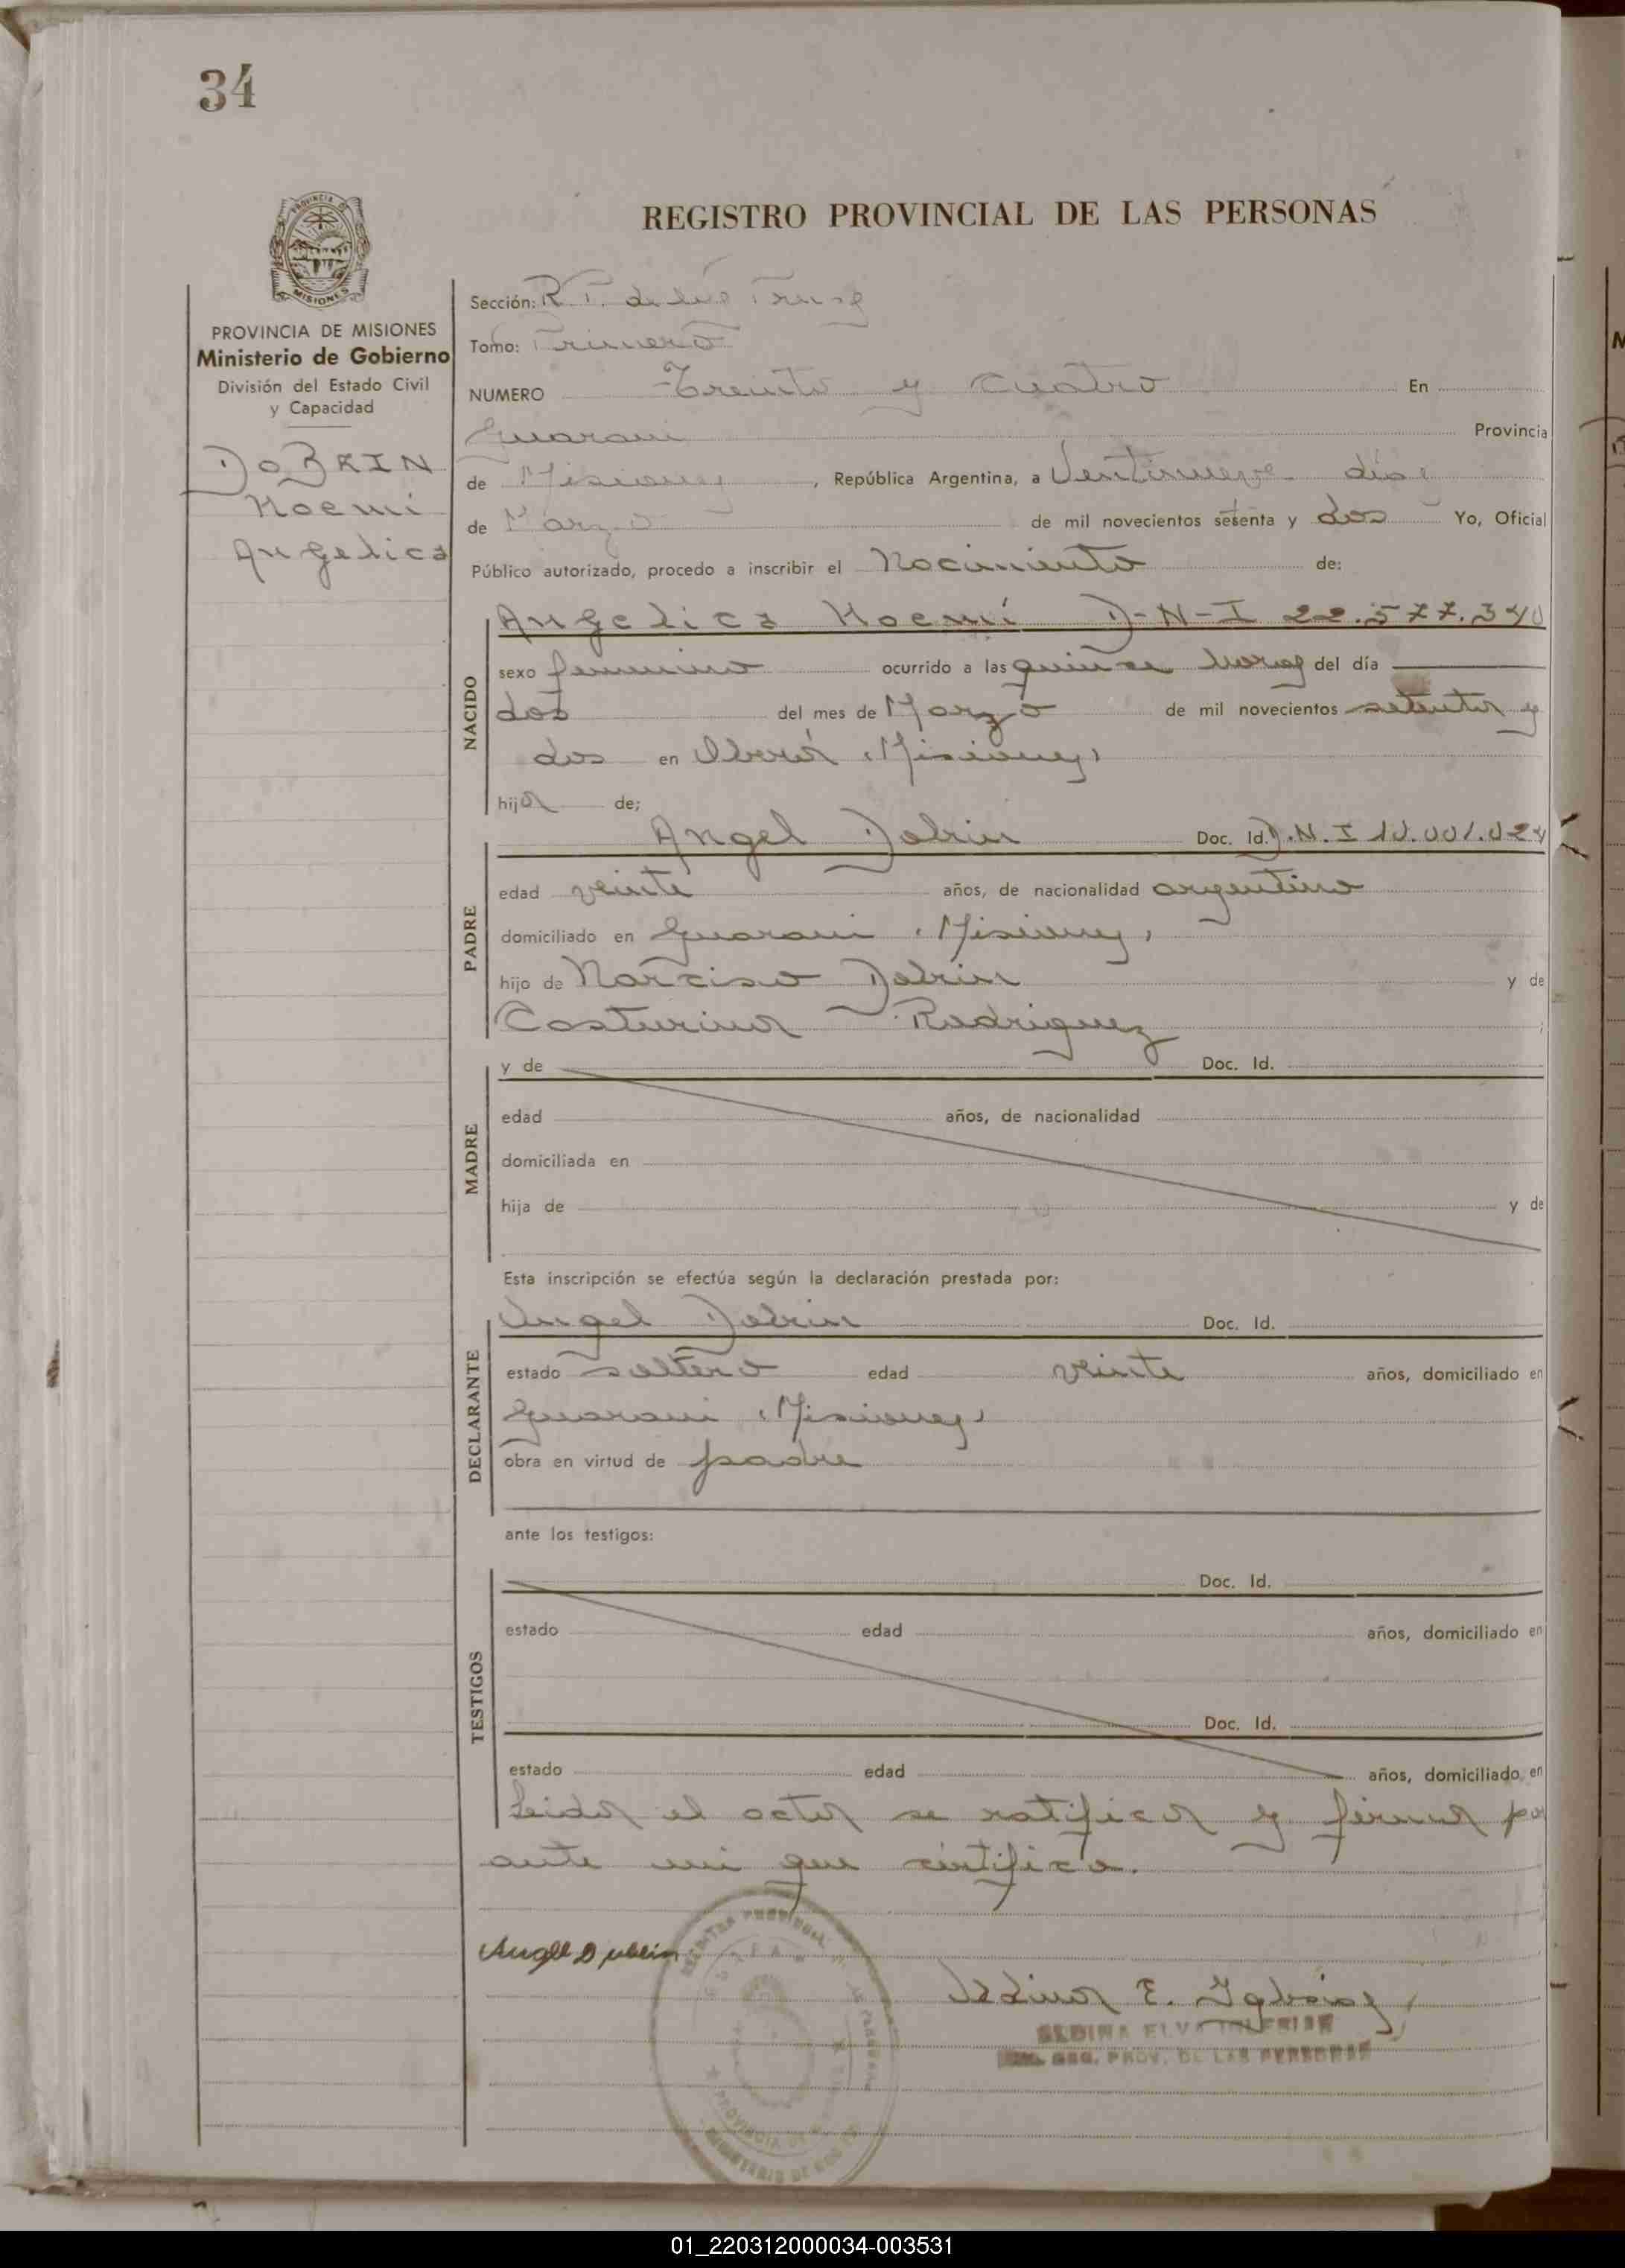 34
REGISTRO PROVINCIAL DE LAS PERSONAS
PROVINCIA DE MISIONES
Ministerio de Gobierno
División del Estado Civil
y Capacidad
DOBRIN
Noemi
Angelica
Sección: R. P. de las
Tomo: Primero
NUMERO Treinta y cuatro En
Guarani Provincia
de Misiones, República Argentina, a Ventinueve días
de Marzo de mil novecientos setenta y dos Yo, Oficial
Público autorizado, procedo a inscribir el Nacimiento de:
NACIDO
Angelica Noemí D-N-I 22.577.340
sexo femenino ocurrido a las quince horas del día
dos del mes de Marzo de mil novecientos setenta y
dos en Oberá (Misiones)
hija de;
PADRE
Angel Dobrin Doc. Id. D.N.I 10.001.024
edad veinte años, de nacionalidad argentino
domiciliado en Guarani (Misiones)
hijo de Narciso Dobrin y de
Casturina Rodriguez
MADRE
y de Doc. Id.
edad años, de nacionalidad
domiciliada en
hija de y de
Esta inscripción se efectúa según la declaración prestada por:
DECLARANTE
Angel Dobrin Doc. Id.
estado soltero edad veinte años, domiciliado en
Guarani (Misiones)
obra en virtud de padre
ante los testigos:
TESTIGOS
Doc. Id.
estado edad años, domiciliado en
Doc. Id.
estado edad años, domiciliado en
Leida el acta se ratifica y firma por
ante mi que certifico.
Angel Dobrin
E. Iglesias
ELVA IGLESIAS
REG. PROV. DE LAS PERSONAS
01_220312000034-003531